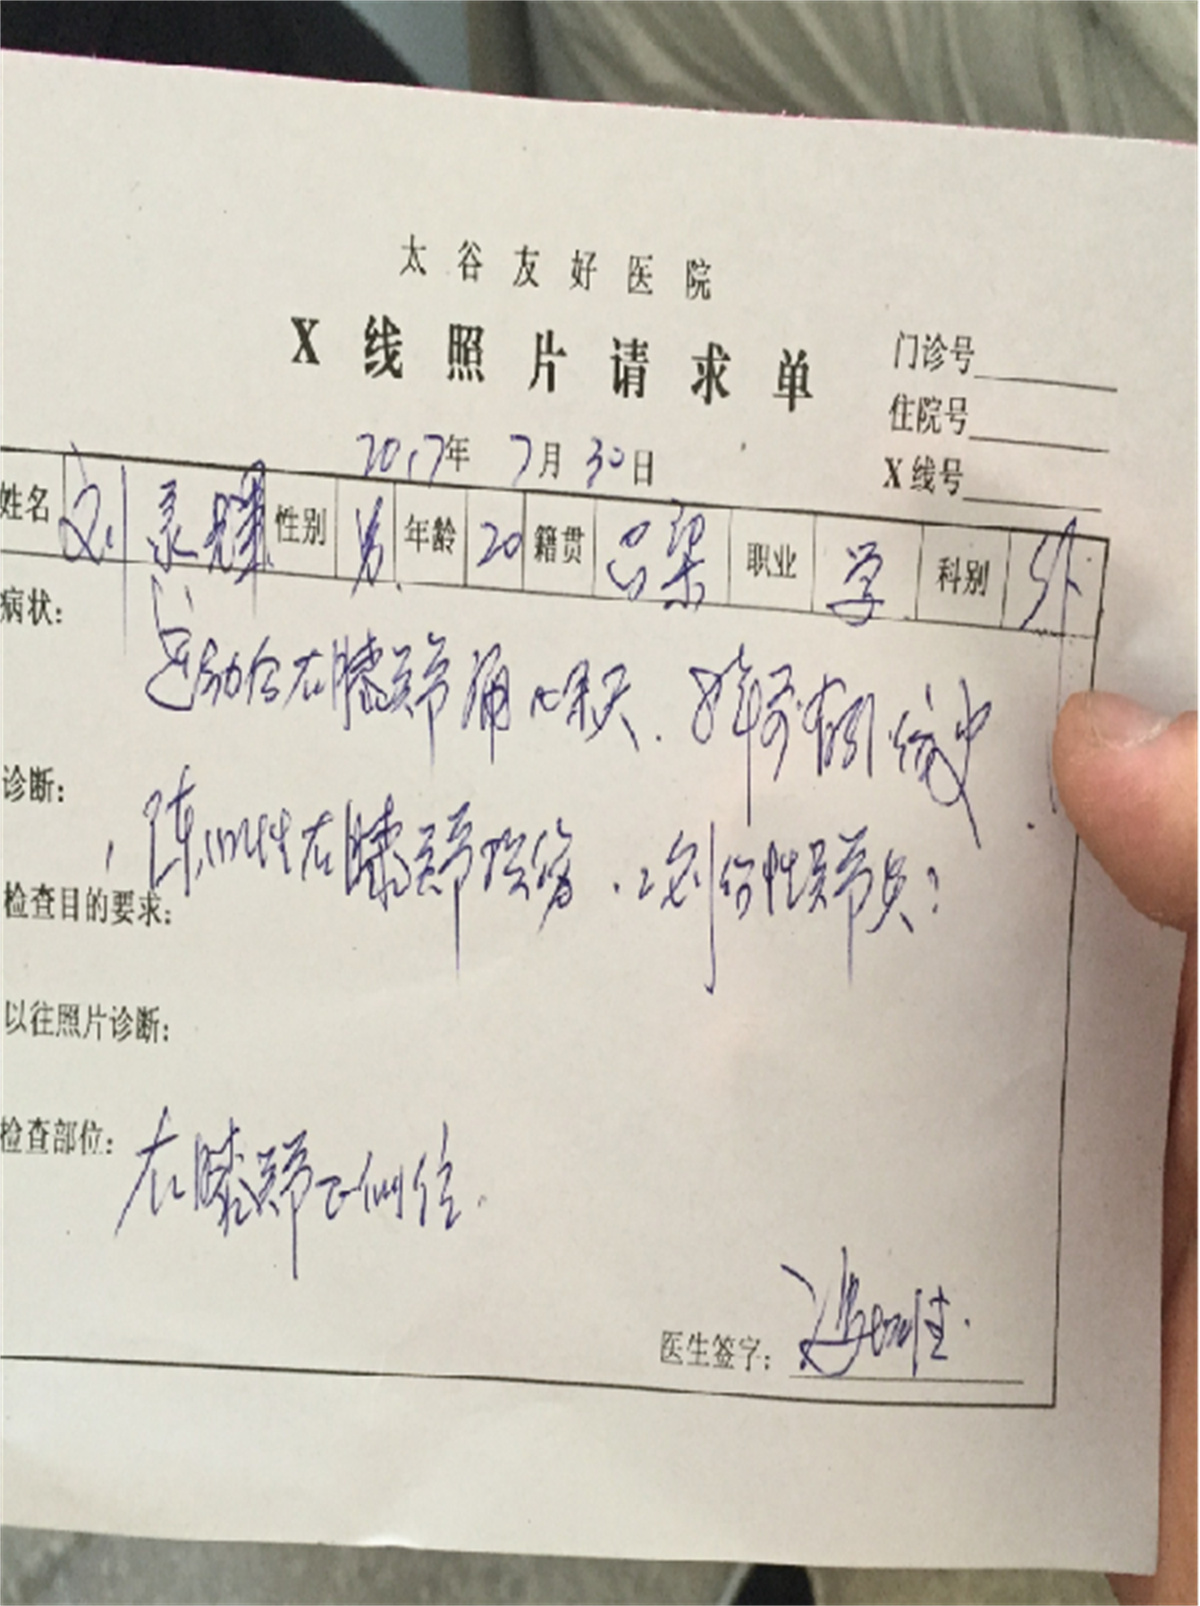 太谷友好医院
X线照片请求单
门诊号
住院号
X线号
2017年 7月 30日
姓名 刘 性别 男 年龄 20 籍贯 吕梁 职业 学 科别 外
病状:
运动后右膝关节痛 天. 年前有外伤史.
诊断:
1 陈旧性右膝关节损伤. 2 创伤性关节炎?
检查目的要求:
以往照片诊断:
检查部位: 右膝关节正侧位.
医生签字: